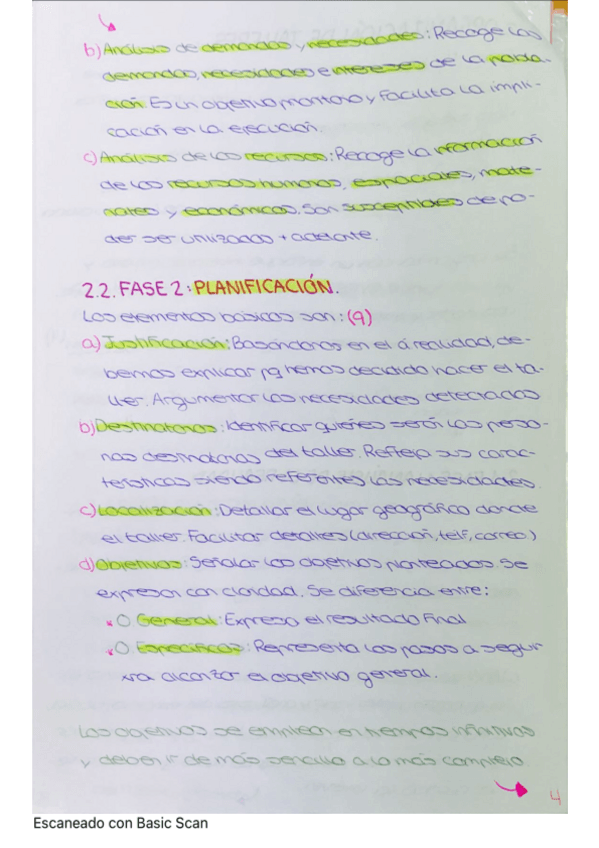 b) Análisis de demandas y necesidades: Recoge las
demandas, necesidades e intereses de la pobla-
ción. Es un objetivo prioritario y facilita la impli-
cación en la ejecución.
c) Análisis de los recursos: Recoge la información
de los recursos humanos, espaciales, mate-
riales y económicos. Son susceptibles de po-
der ser utilizados + adelante.
2.2. FASE 2: PLANIFICACIÓN.
Los elementos básicos son: (9)
a) Justificación: Basándonos en el á realidad, de-
bemos explicar pq hemos decidido hacer el ta-
ller. Argumentar las necesidades detectadas
b) Destinatarios: Identificar quiénes serán las perso-
nas destinatarias del taller. Refleja sus carac-
terísticas siendo referentes las necesidades.
c) Localización: Detallar el lugar geográfico donde
el taller. Facilitar detalles (dirección, telf, correo)
d) Objetivos: Señalar los objetivos planteados. Se
expresan con claridad. Se diferencia entre:
O. General: Expresa el resultado final
O. Específicos: Representa los pasos a seguir
xra alcanzar el objetivo general.
Los objetivos se emplean en tiempos infinitivos
y deben ir de más sencillo a lo más complejo
4
Escaneado con Basic Scan